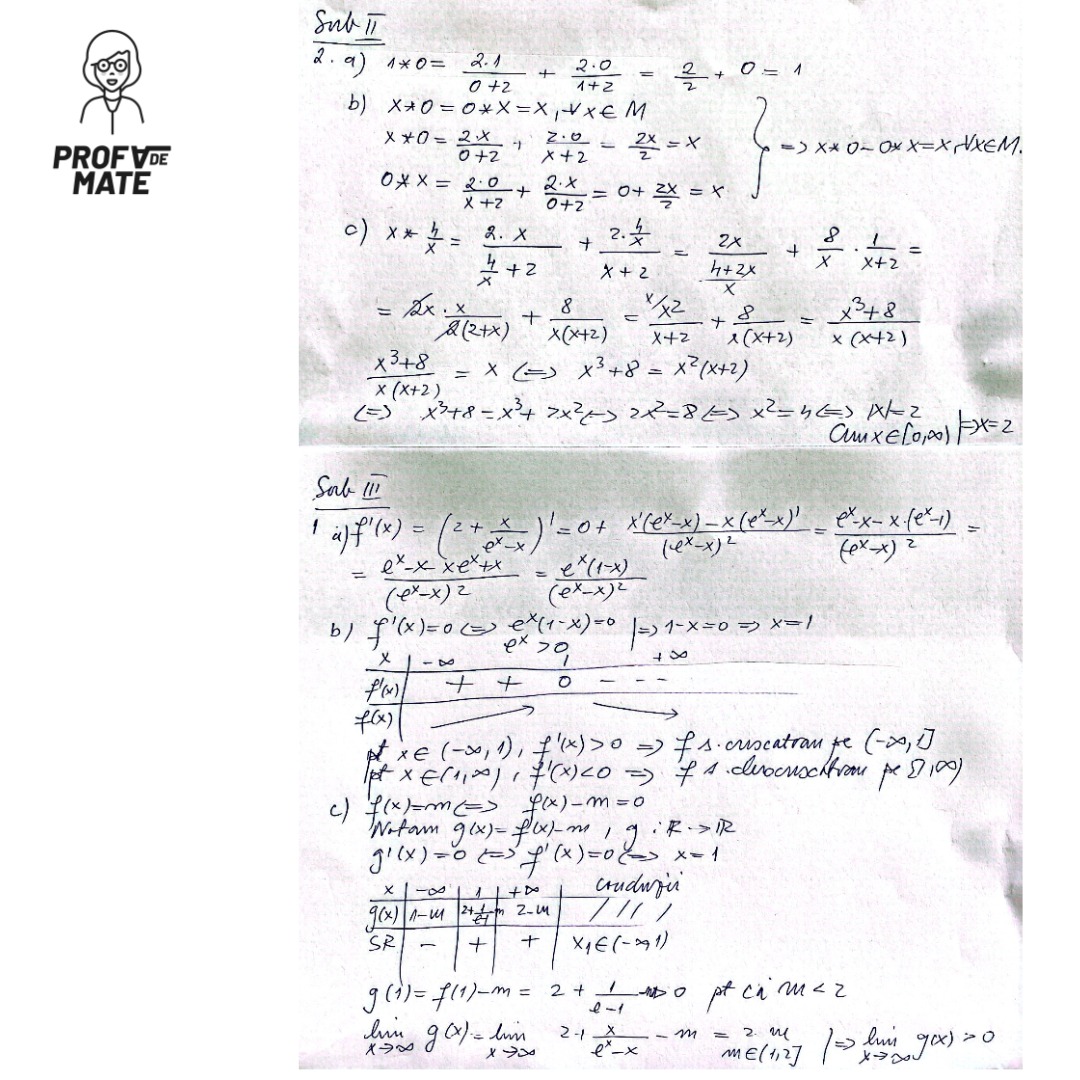 PROFA DE
MATE
Sub II
2. a) 1*0 = 2·1/(0+2) + 2·0/(1+2) = 2/2 + 0 = 1
b) x*0 = 0*x = x, ∀x∈M
x*0 = 2·x/(0+2) + 2·0/(x+2) = 2x/2 = x
0*x = 2·0/(x+2) + 2·x/(0+2) = 0 + 2x/2 = x
} => x*0 = 0*x = x, ∀x∈M.
c) x * 4/x = 2·x/(4/x + 2) + 2·4/x/(x+2) = 2x/((4+2x)/x) + 8/x · 1/(x+2) =
= 2x·x/(2(2+x)) + 8/(x(x+2)) = x/x²/(x+2) + 8/(x(x+2)) = (x³+8)/(x(x+2))
(x³+8)/(x(x+2)) = x <=> x³+8 = x²(x+2)
<=> x³+8 = x³+2x² <=> 2x²=8 <=> x²=4 <=> |x|=2
Cum x∈[0,∞) |=> x=2
Sub III
1 a) f'(x) = (2 + x/(eˣ-x))' = 0 + (x'(eˣ-x) - x(eˣ-x)')/(eˣ-x)² = (eˣ-x-x·(eˣ-1))/(eˣ-x)² =
= (eˣ-x-xeˣ+x)/(eˣ-x)² = eˣ(1-x)/(eˣ-x)²
b) f'(x)=0 <=> eˣ(1-x)=0 |=> 1-x=0 => x=1
eˣ>0
x | -∞ 1 +∞
f'(x) | + + 0 - - -
f(x) | ↗ ↘
pt x∈(-∞,1), f'(x)>0 => f s. crescatoare pe (-∞,1]
pt x∈(1,∞), f'(x)<0 => f s. descrescatoare pe [1,∞)
c) f(x)=m <=> f(x)-m=0
Notam g(x)=f(x)-m, g:R->R
g'(x)=0 <=> f'(x)=0 <=> x=1
x | -∞ | 1 | +∞ | Concluzii
g(x) | 1-m | 2+1/(e-1)-m | 2-m | / / / /
SR | - | + | + | x₁∈(-∞,1)
g(1)=f(1)-m = 2 + 1/(e-1) -m>0 pt că m<2
lim x→∞ g(x) = lim x→∞ 2+ x/(eˣ-x) - m = 2-m m∈(1,2] |=> lim x→∞ g(x)>0